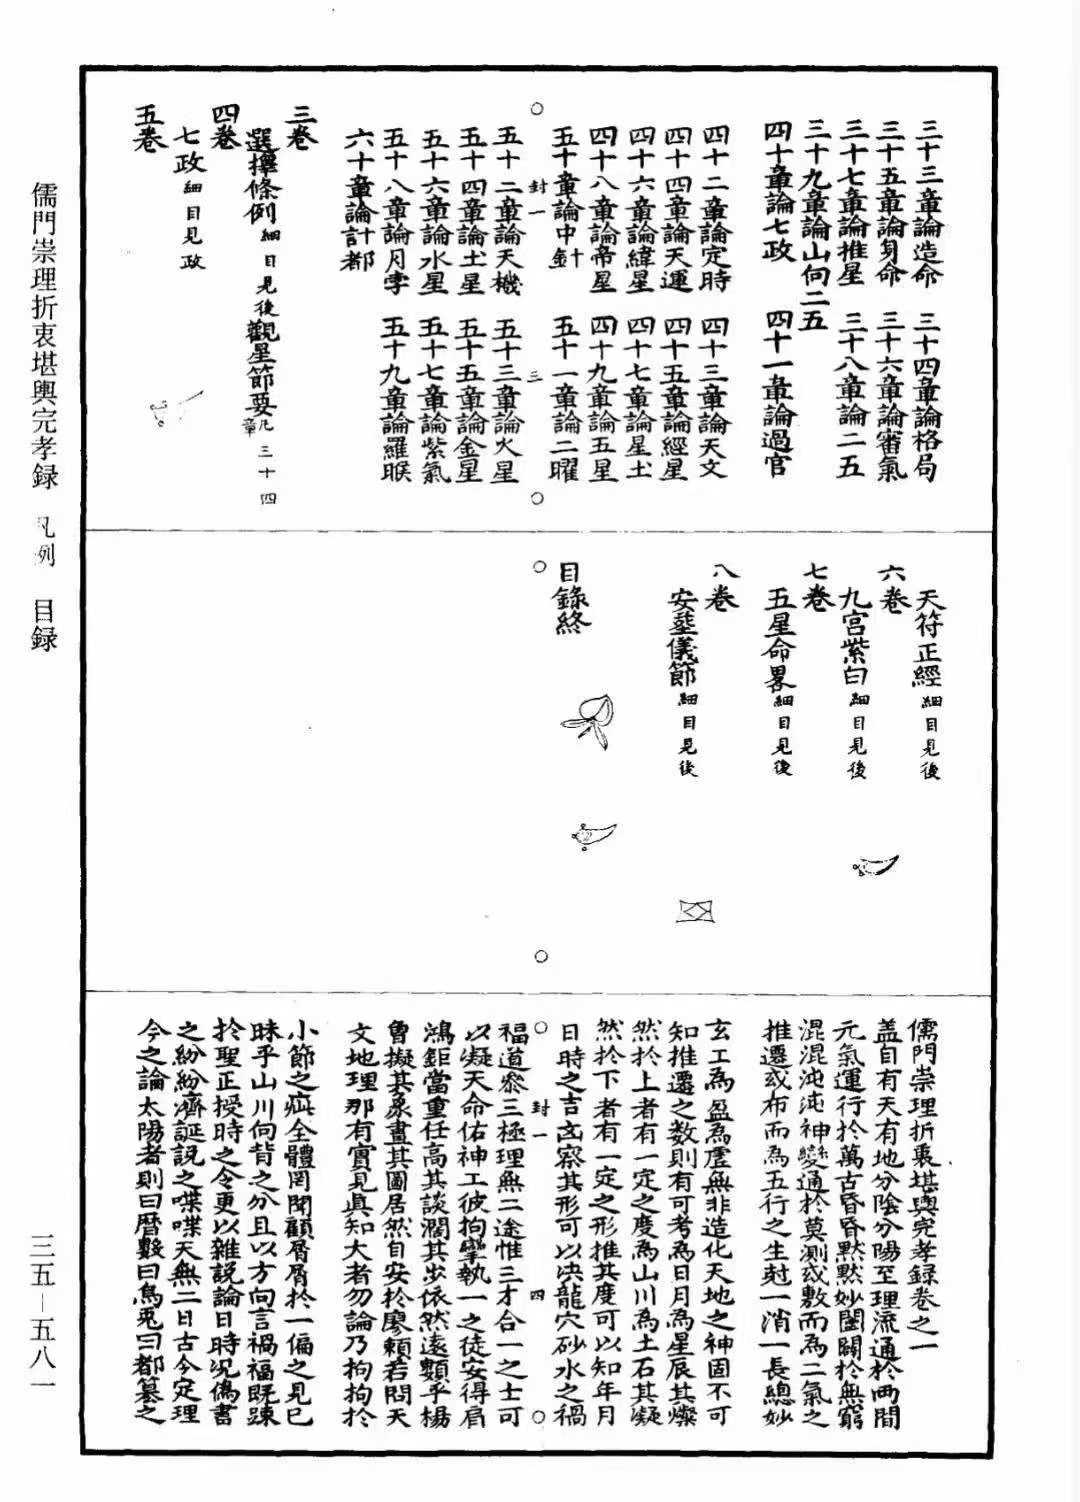 儒門崇理折衷堪輿完孝録 凡例 目録
三五—五八一
三十三章論造命 三十四章論格局
三十五章論身命 三十六章論審氣
三十七章論推星 三十八章論二五
三十九章論山向二五
四十章論七政 四十一章論過官
四十二章論定時 四十三章論天文
四十四章論天運 四十五章論經星
四十六章論緯星 四十七章論星土
四十八章論帝星 四十九章論五星
五十章論中針 五十一章論二曜
封一 三
五十二章論天機 五十三章論火星
五十四章論土星 五十五章論金星
五十六章論水星 五十七章論紫氣
五十八章論月孛 五十九章論羅睺
六十章論計都
三卷
選擇條例細目見後 觀星節要凡三十四章
四卷
七政細目見政
五卷
天符正經細目見後
六卷
九宮紫白細目見後
七卷
五星命畧細目見後
八卷
安塟儀節細目見後
目錄終
儒門崇理折衷堪輿完孝録卷之一
盖自有天有地分陰分陽至理流通於两間
元氣運行於萬古昏昏黙黙妙闔闢於無窮
混混沌沌神變通於莫測或敷而為二氣之
推遷或布而為五行之生尅一消一長總妙
玄工為盈為虛無非造化天地之神固不可
知推遷之数則有可考為日月為星辰其燦
然於上者有一定之度為山川為土石其凝
然於下者有一定之形推其度可以知年月
日時之吉凶察其形可以决龍穴砂水之禍
封一 四
福道叅三極理無二途惟三才合一之士可
以凝天命佑神工彼拘攣執一之徒安得肩
鴻鉅當重任高其談濶其步依然遠顙乎楊
曾擬其象畫其圖居然自安於廖賴若問天
文地理那有實見眞知大者勿論乃拘拘於
小節之疵全體罔聞顧屑屑於一偏之見已
昧乎山川向背之分且以方向言禍福既踈
於聖正授時之令更以雜説論日時况偽書
之紛紛濟誕説之喋喋天無二日古今定理
今之論太陽者則曰暦數曰烏兎曰都篡之